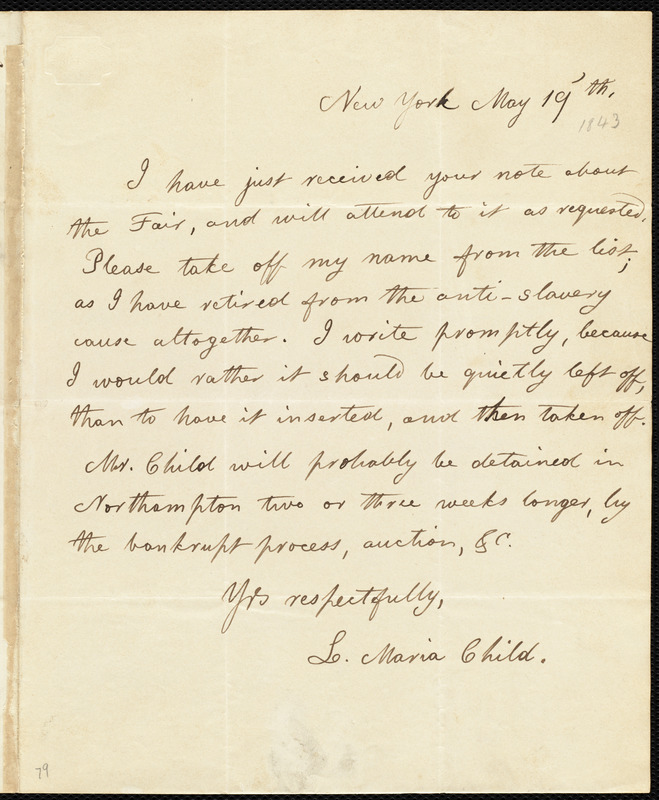 New York May 19th.
1843
I have just received your note about
the Fair, and will attend to it as requested.
Please take off my name from the list;
as I have retired from the anti-slavery
cause altogether. I write promptly, because
I would rather it should be quietly left off,
than to have it inserted, and then taken off.
Mr. Child will probably be detained in
Northampton two or three weeks longer, by
the bankrupt process, auction, &c.
Yrs respectfully,
L. Maria Child.
79